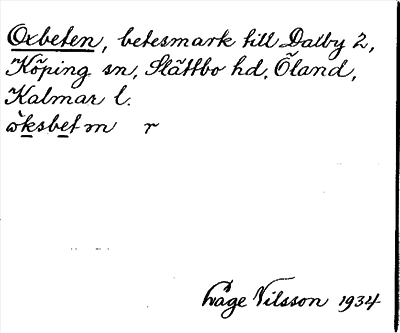 Oxbeten, betesmark till Dalby 2,
Köping sn, Slättbo hd, Öland,
Kalmar l.
öksbetm r
Åge Nilsson 1934